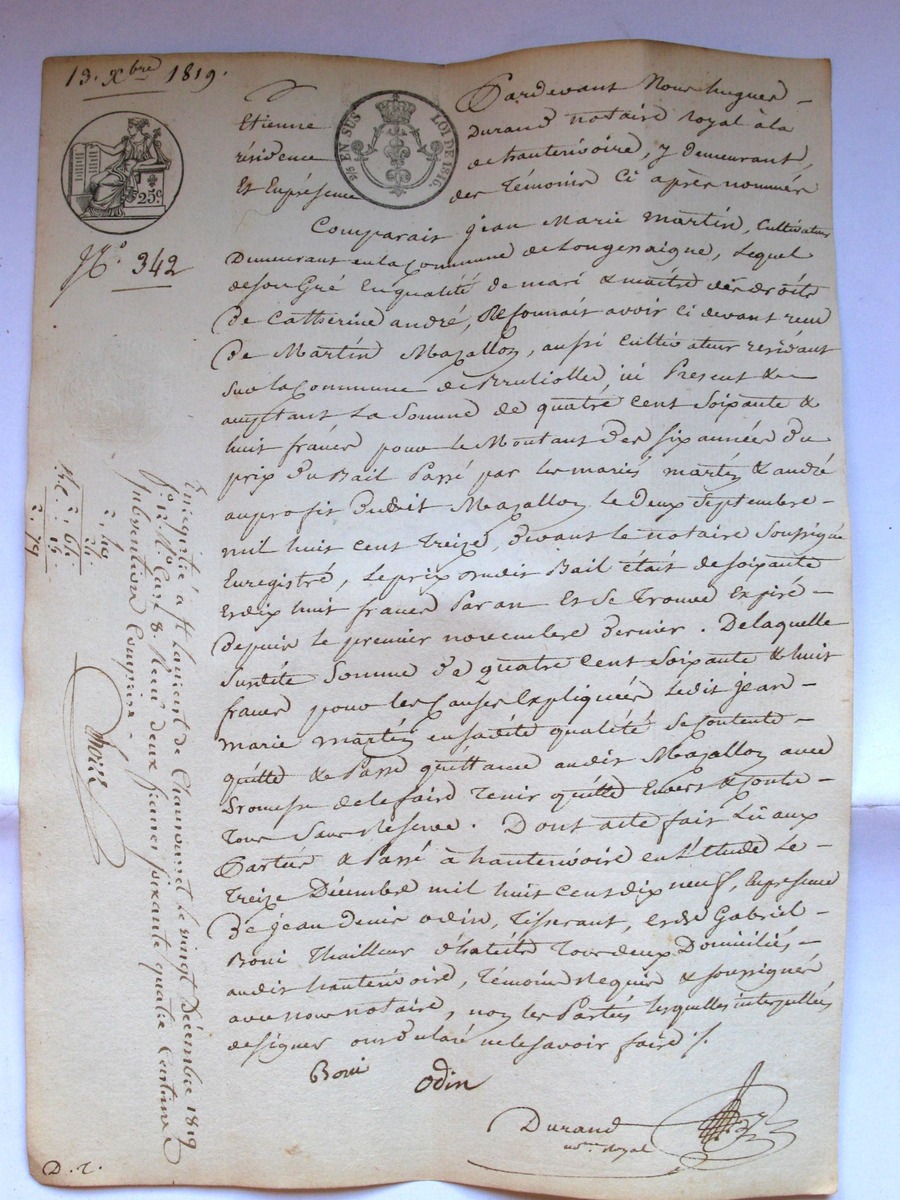 13. Xbre 1819.
Pardevant Nous hugues
Etienne Durand notaire royal à la
résidence de hauterivoire, y demeurant,
Et Enprésence des Témoins Ci après nommés
EN SUS
LOI DE 1816.
25c
No. 342
Comparait jean Marie martin, Cultivateur
Demeurant en la Commune de Longessaigne, Lequel
de son Gré En qualité de mari & maitre des droits
De Catherine andré, Reconnait avoir Ci devant reçu
De Martin Mazallon, aussi Cultivateur residant
Sur la Commune de Brullolles, ici Present &
acceptant La Somme de quatre cent Soixante &
huit francs pour le Montant des six années du
prix du Bail Passé par les mariés martin & andré
au profit Dudit Mazallon Le Deux Septembre
mil huit cent Treize, Devant le notaire Soussigné
Enregistré, Le prix dudit Bail était de soixante
Et dix huit francs Par an Et se Trouve Expiré
Depuis le premier novembre Dernier. De laquelle
Susdite Somme De quatre Cent Soixante & huit
francs pour les Causes Expliquées Ledit jean
marie martin en sadite qualité Se Contente
quitte & Passe quittance audit Mazallon avec
Promesse de le faire Tenir quitte Envers & Contre
Tous Sans Reserve. Dont acte fait Lû aux
Parties & Passé à hauterivoire en L'étude Le
Treize Décembre mil huit Cent dix neuf, En presence
De jean Denis odin, Tisserant, et de Gabriel
Boni Thailleur d'habits Tous deux Domiciliés
audit hauterivoire, Témoins Requis & soussignés
avec nous notaire, non les Parties Lesquelles interpellées
de signer ont Déclaré ne le savoir faire ./.
Boni
odin
Durand
nre Royal
Enregistré à St Laurent de Chamousset le vingt Décembre 1819
fo 12 Vo Case 8. Reçu deux francs soixante quatre Centimes
Subvention Comprise.
D. r.